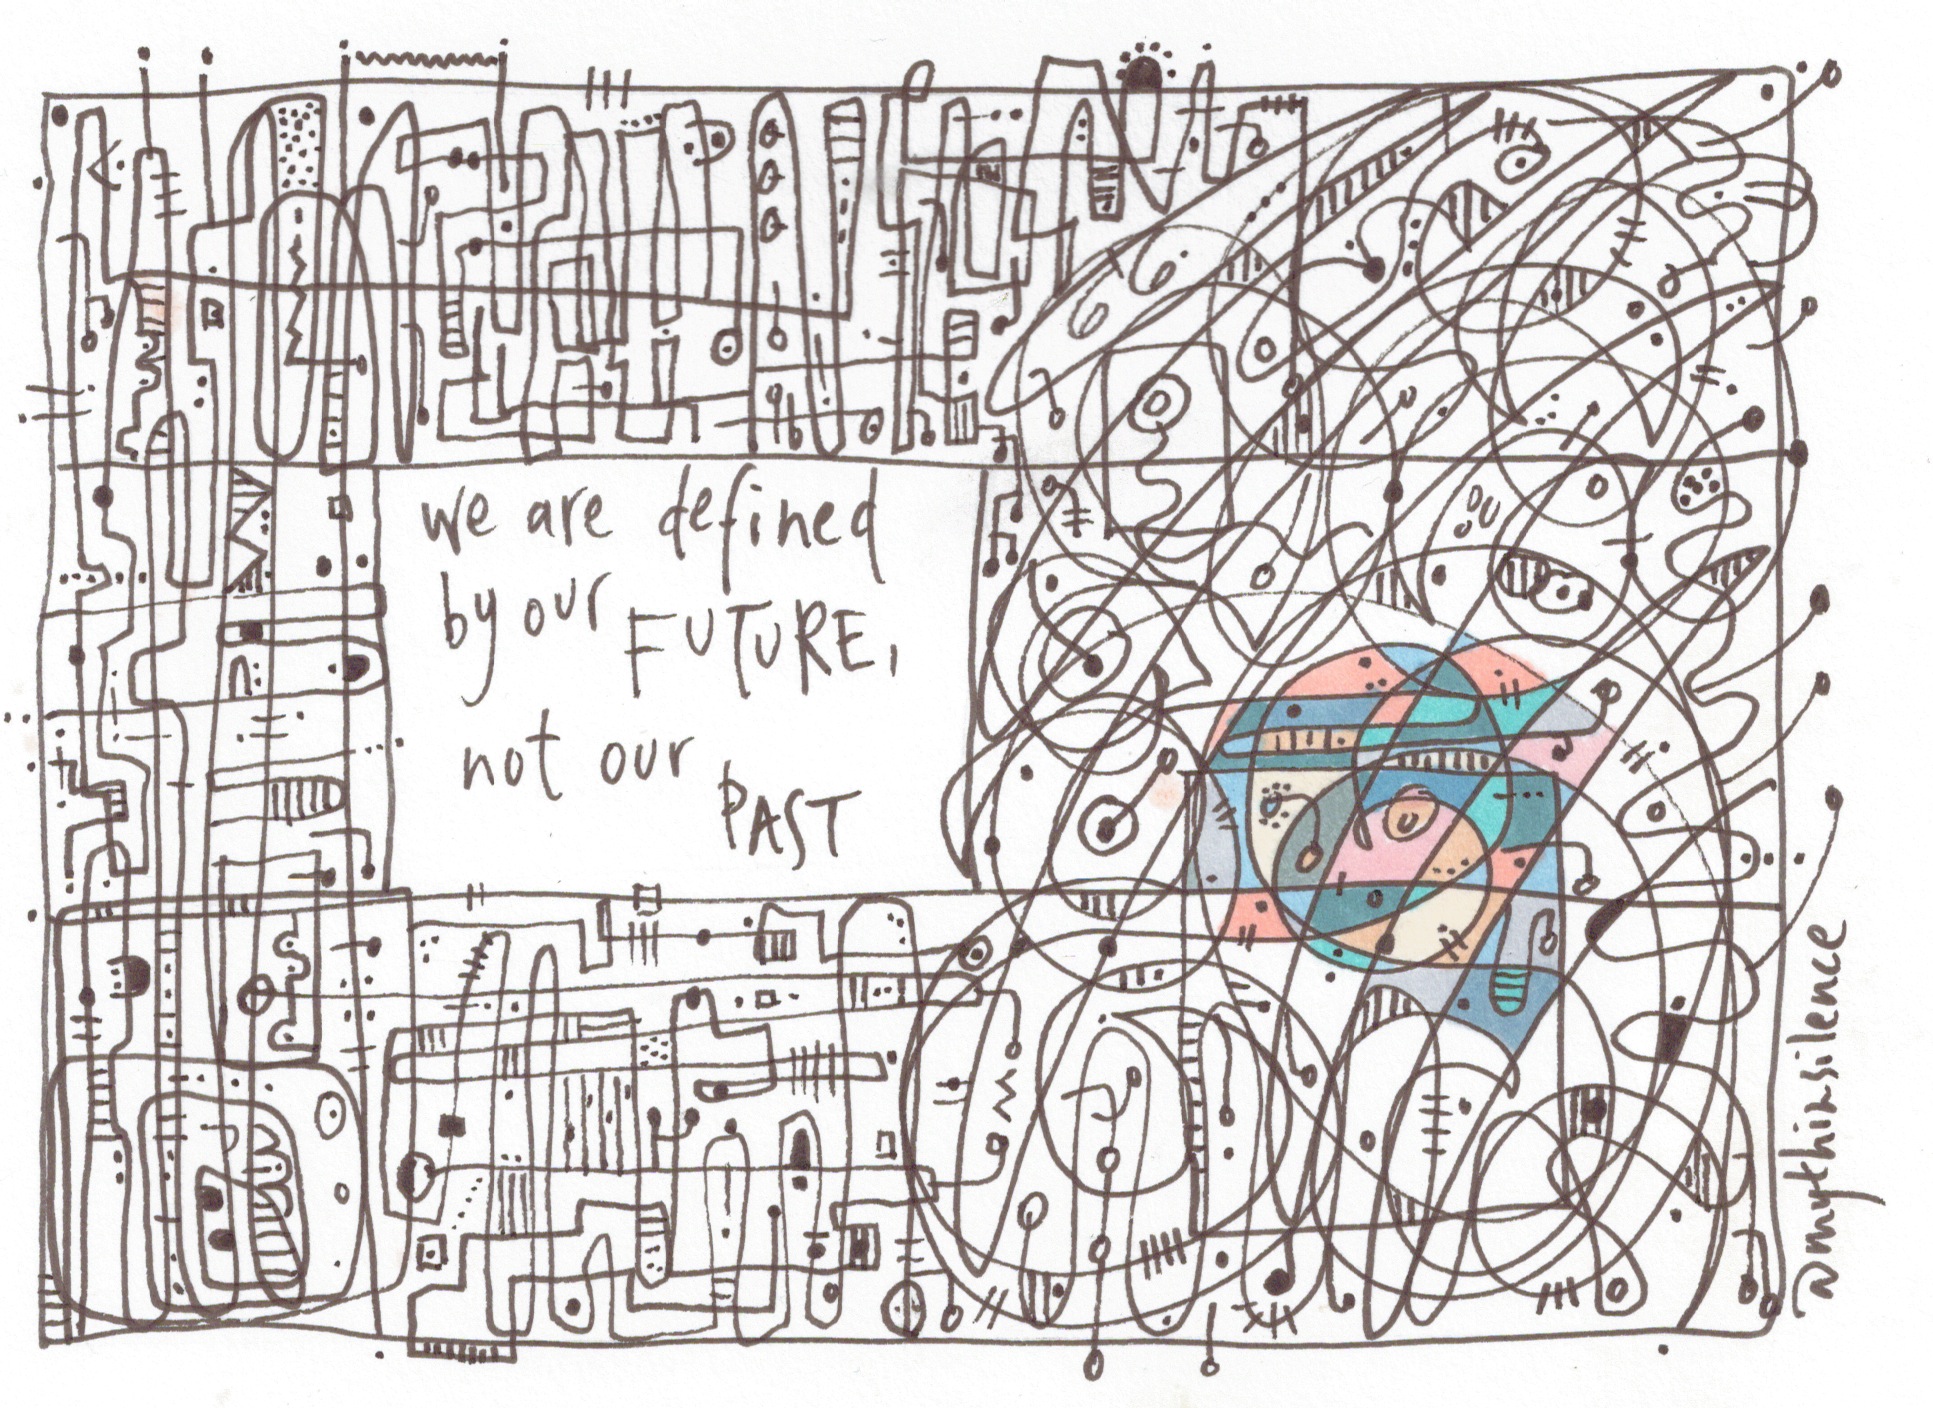 we are defined
by our FUTURE,
not our PAST
@mythinsilence